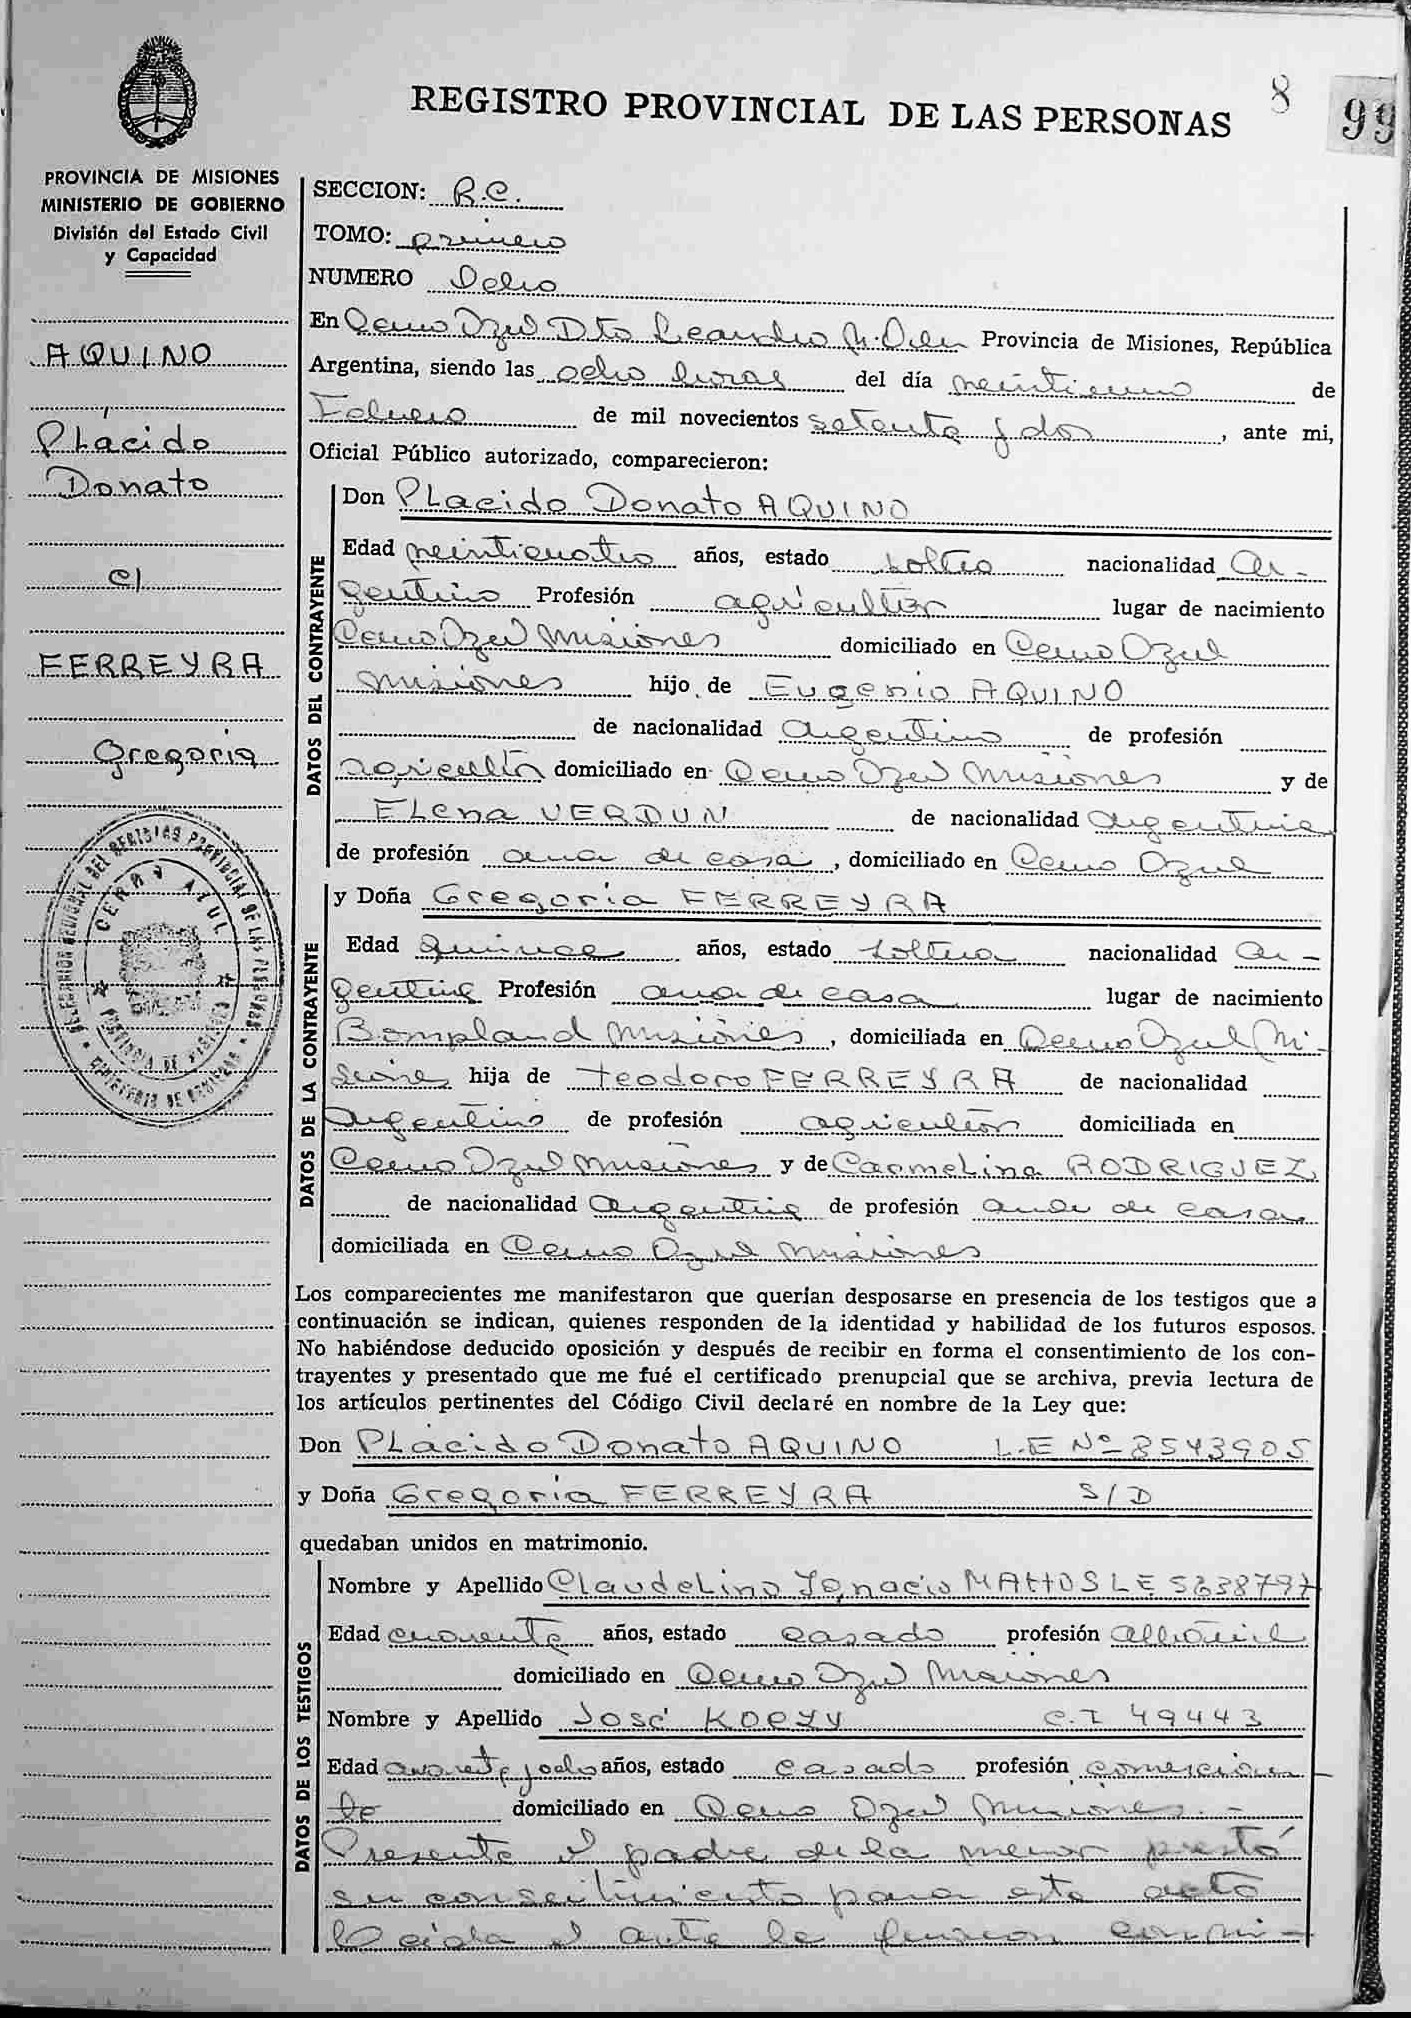 REGISTRO PROVINCIAL DE LAS PERSONAS
8
99
PROVINCIA DE MISIONES
MINISTERIO DE GOBIERNO
División del Estado Civil
y Capacidad
AQUINO
Plácido
Donato
c/
FERREYRA
Gregoria
CERRO AZUL
SECCION: R.C.
TOMO: primero
NUMERO Ocho
En Cerro Azul Dto Leandro N. Alem Provincia de Misiones, República
Argentina, siendo las ocho horas del día veintiuno de
Febrero de mil novecientos setenta y dos, ante mi,
Oficial Público autorizado, comparecieron:
DATOS DEL CONTRAYENTE
Don PLacido Donato AQUINO
Edad veinticuatro años, estado soltero nacionalidad Ar-
gentino Profesión agricultor lugar de nacimiento
Cerro Azul Misiones domiciliado en Cerro Azul
Misiones hijo de Eugenio AQUINO
de nacionalidad Argentino de profesión
agricultor domiciliado en Cerro Azul Misiones y de
ELena VERDUN de nacionalidad Argentina
de profesión ama de casa, domiciliado en Cerro Azul
DATOS DE LA CONTRAYENTE
y Doña Gregoria FERREYRA
Edad quince años, estado soltera nacionalidad Ar-
gentina Profesión ama de casa lugar de nacimiento
Bompland Misiones, domiciliada en Cerro Azul Mi-
siones hija de Teodoro FERREYRA de nacionalidad
Argentino de profesión agricultor domiciliada en
Cerro Azul Misiones y de CarmeLina RODRIGUEZ
de nacionalidad Argentina de profesión ama de casa
domiciliada en Cerro Azul Misiones
Los comparecientes me manifestaron que querían desposarse en presencia de los testigos que a
continuación se indican, quienes responden de la identidad y habilidad de los futuros esposos.
No habiéndose deducido oposición y después de recibir en forma el consentimiento de los con-
trayentes y presentado que me fué el certificado prenupcial que se archiva, previa lectura de
los artículos pertinentes del Código Civil declaré en nombre de la Ley que:
Don PLacido Donato AQUINO L.E Nº 8543905
y Doña Gregoria FERREYRA S/D
quedaban unidos en matrimonio.
DATOS DE LOS TESTIGOS
Nombre y Apellido CLaudeLino Ignacio MATTOS LE 5638797
Edad cuarenta años, estado casado profesión albañil
domiciliado en Cerro Azul Misiones
Nombre y Apellido José KOEZY C.I 49443
Edad cuarenta y ocho años, estado casado profesión comercian-
te domiciliado en Cerro Azul Misiones.-
Presente el padre de la menor prestó
su consentimiento para este acto
Leida el acta le firman conmi-